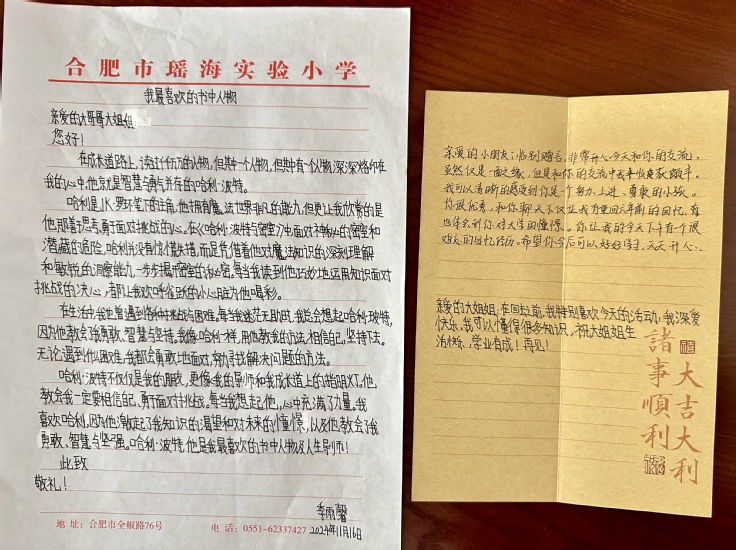 合肥市瑶海实验小学
我最喜欢的书中人物
亲爱的大哥哥大姐姐
您好!
在成长道路上,读过千千万的人物,但其中一个人物,但其中有一个人物深深烙印在
我的心中,他就是智慧与勇气并存的哈利·波特。
哈利是J.K·罗琳笔下的主角,他拥有魔法世界非凡的能力,但更让我欣赏的是
他那善于思考,勇于面对挑战的心。在《哈利·波特与密室》中,面对不解的密室和
潜藏的危险,哈利并没有惊慌失措,而是凭借着他对魔法知识的深刻理解
和敏锐的洞察能力,一步步揭开密室的秘密,每当我读到他巧妙地运用知识面对
挑战的决心,都让我欢呼雀跃的小心脏为他喝彩。
在生活中,我也曾遇到各种挑战与困难,每当我迷茫无助时,我总会想起哈利·玻特,
因为他教会了我勇敢、智慧与坚持。我像哈利一样,用他教我的方法,相信自己,坚持下去。
无论遇到什么困难,我都会勇敢地面对,努力寻找解决问题的方法。
哈利·波特不仅仅是我的朋友,更像我的导师和我成长道上的指明灯,他
教会我一定要相信自己,勇于面对挑战。每当我想起他,心中充满了力量。我
喜欢哈利,因为他激起了我知识的渴望和对未来的憧憬,以及他教会了我
勇敢、智慧与坚强。哈利·波特,他是我最喜欢的书中人物及人生导师!
此致
敬礼!
李雨馨
2024年11月16日
地 址:合肥市全椒路76号 电 话:0551-62337427
亲爱的小朋友:临别赠言,非常开心今天和你的交流,
虽然仅是一面之缘,但是和你的交流中我车收获颇丰。
我可以清晰的感受到你是一个努力、上进、勇敢的小孩。
你很优秀,和你聊天不仅让我有重回六年前的回忆,有
也体会到你对大学的憧憬。你让我的今天下午有个很
难忘的回忆经历。希望你今后可以好好学习,天天开心。
亲爱的大姐姐:在回校前,我特别喜欢今天的活动,我深爱
快乐,我可以懂得很多知识,祝大姐姐生
活快乐,学业有成!再见!
大吉大利
諸事順利